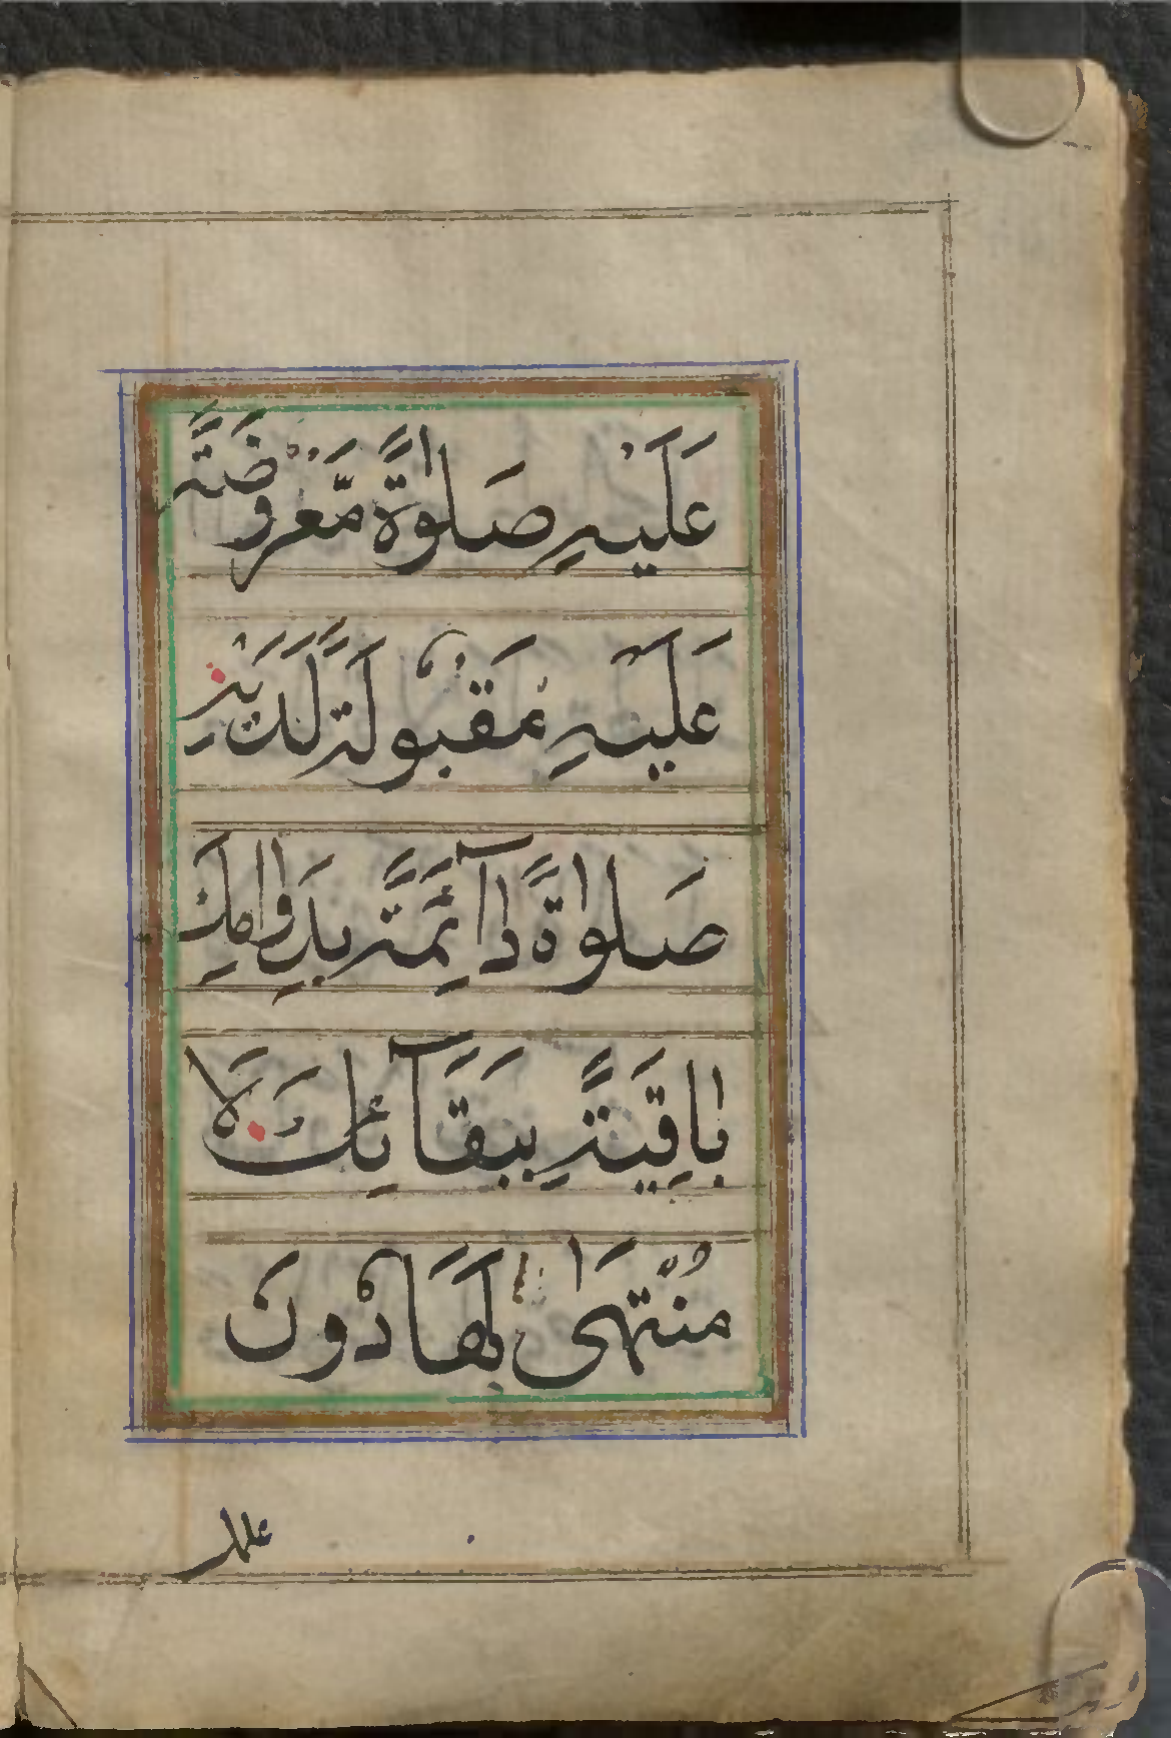 عَلَيْهِ صَلٰوةً مَّعْرُوضَةً
عَلَيْهِ مَقْبُولَةً لَّدَيْهِ
صَلٰوةً دَآئِمَةً بِدَوَامِكَ
بَاقِيَةً بِبَقَآئِكَ لَا
مُنْتَهٰى لَهَا دُونَ
علمك